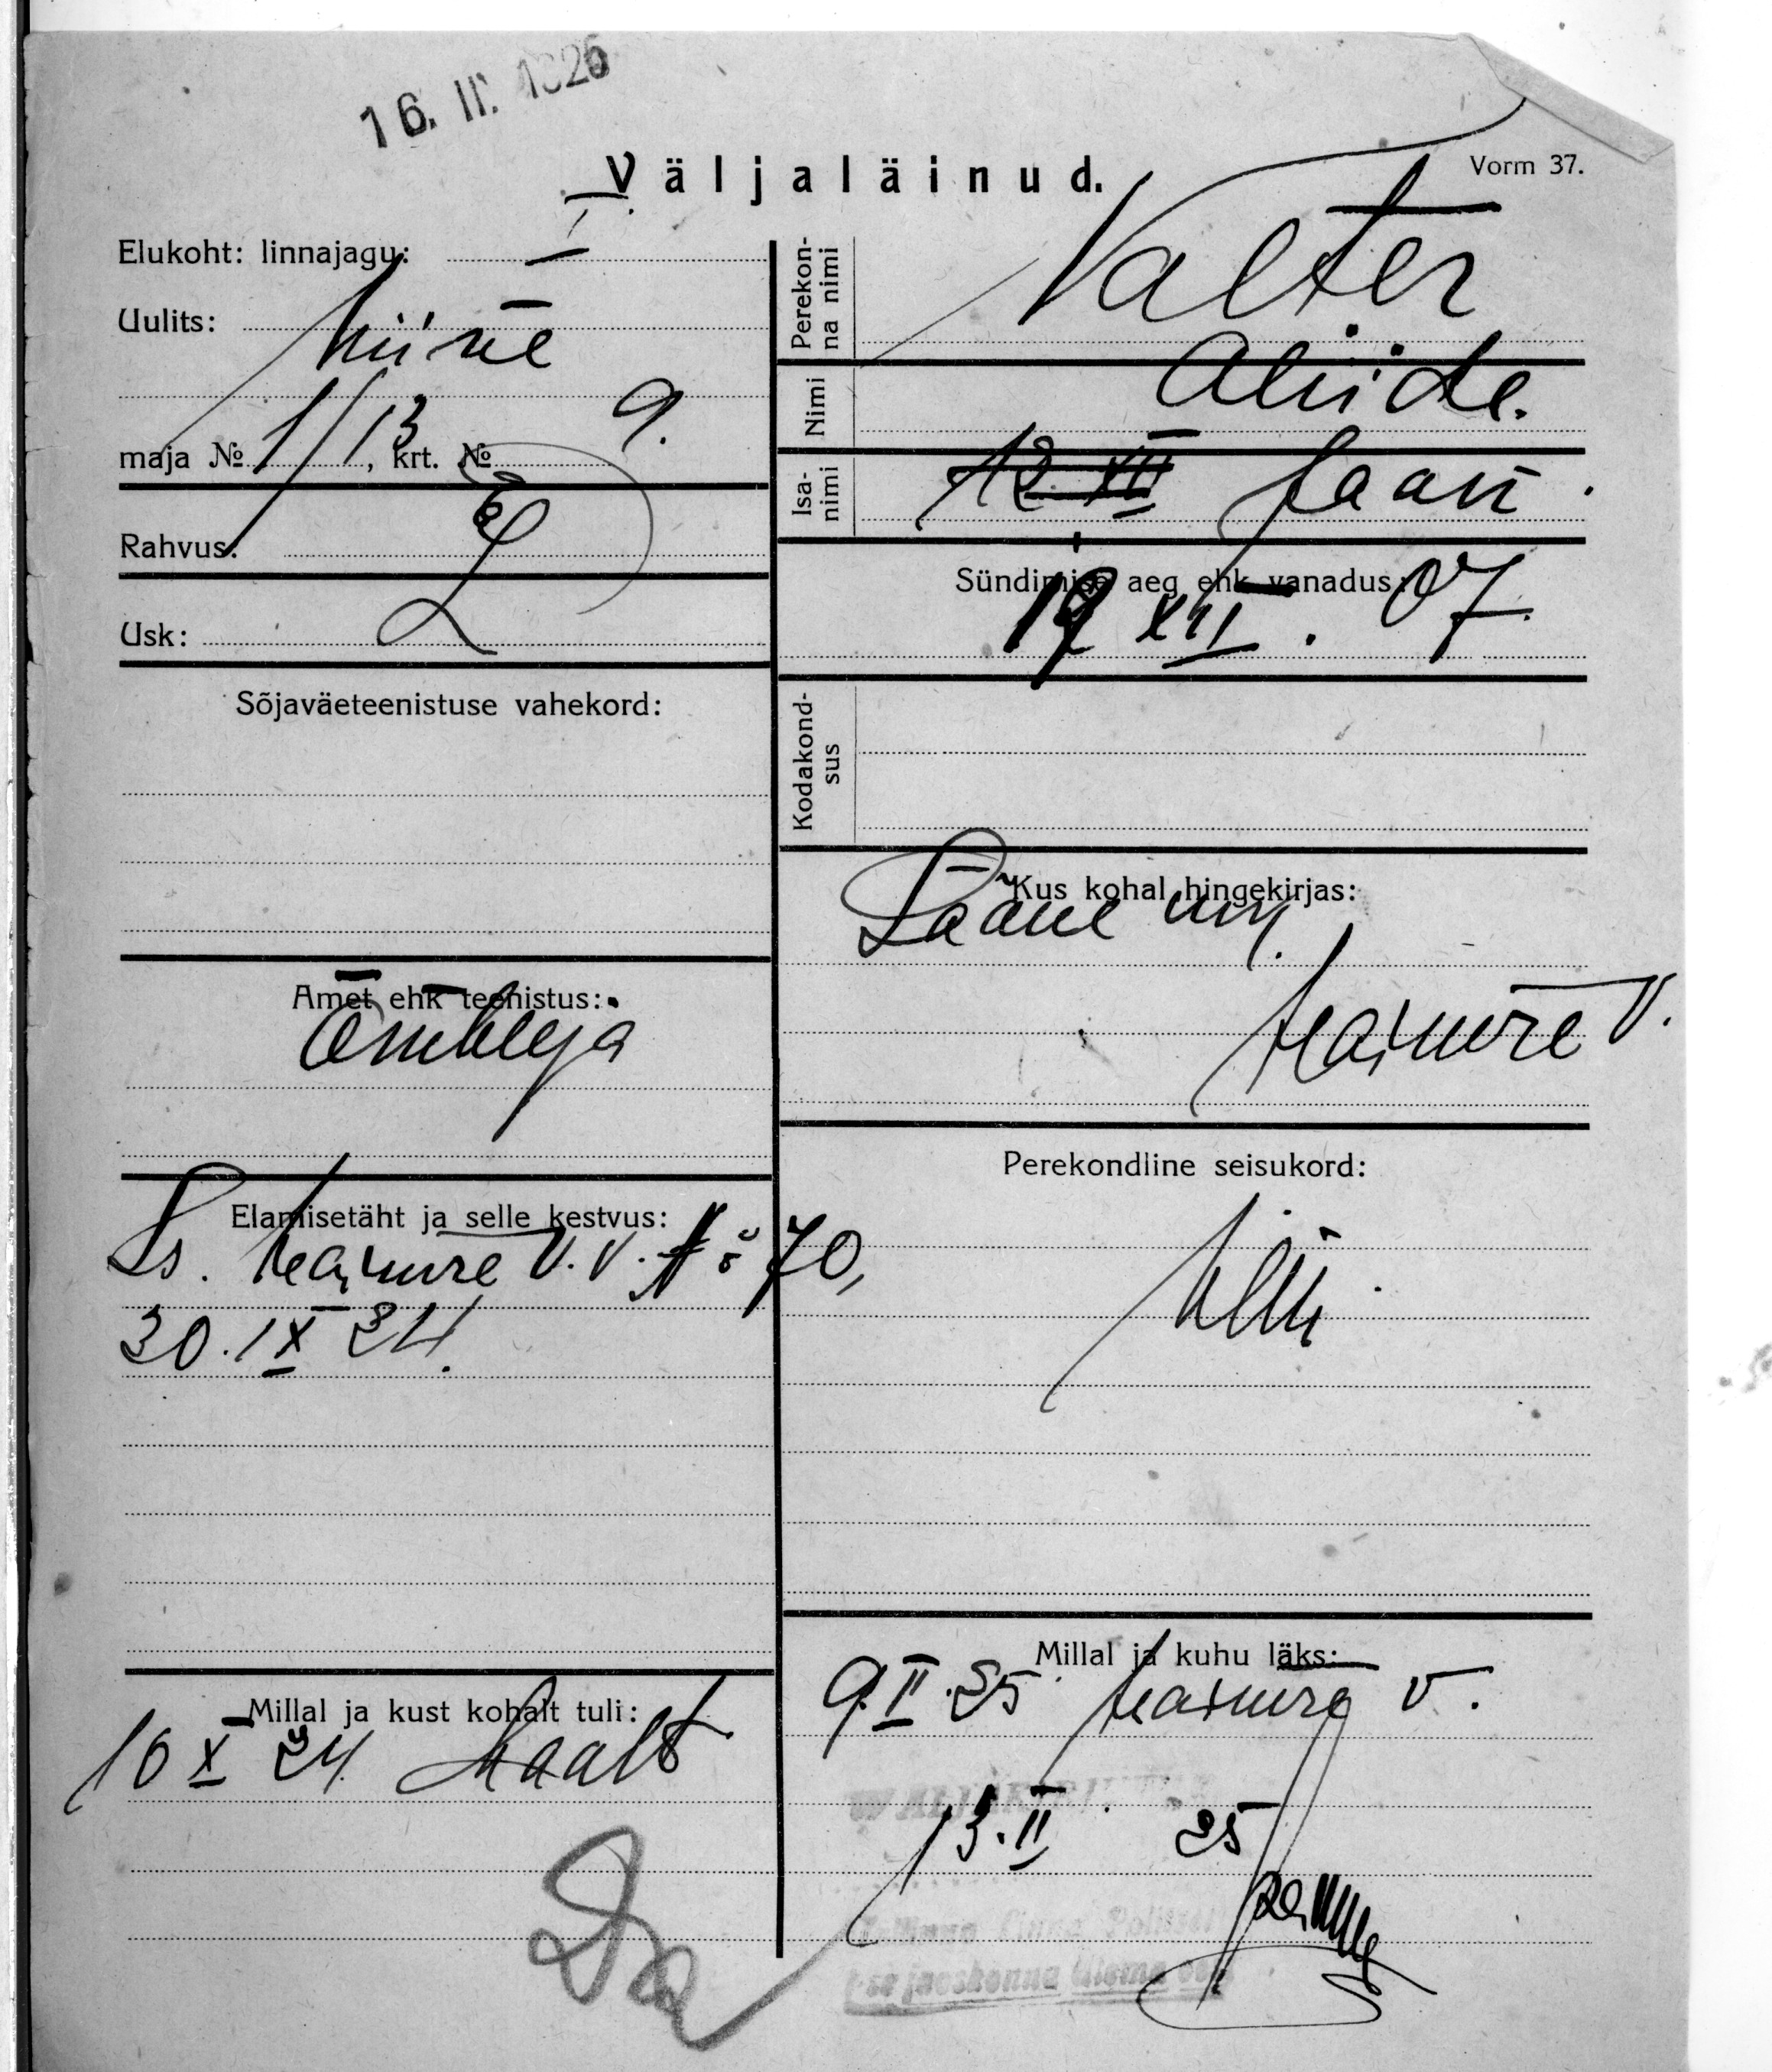 16. II. 1926
Väljaläinud.
Vorm 37.
Elukoht: linnajagu: I
Uulits: Niine
maja № 1/13, krt. № 9.
Rahvus: E
Usk: L
Sõjaväeteenistuse vahekord:
Amet ehk teenistus:
Õmbleja
Elamisetäht ja selle kestvus:
Is. v. v. № 70,
30. IX 24.
Millal ja kust kohalt tuli:
10 X 24. Maalt
Da
Perekonna nimi
Valter
Nimi
Aliide.
Isanimi
12 XII Jaan.
Sündimise aeg ehk vanadus:
12 XII. 07.
Kodakondsus
Kus kohal hingekirjas:
Lääne m.
v.
Perekondline seisukord:
Millal ja kuhu läks:
9. II. 25 v.
VÄLJA
13. II 25
Tallinna Linna Politsei
I-se jaoskonna ülema